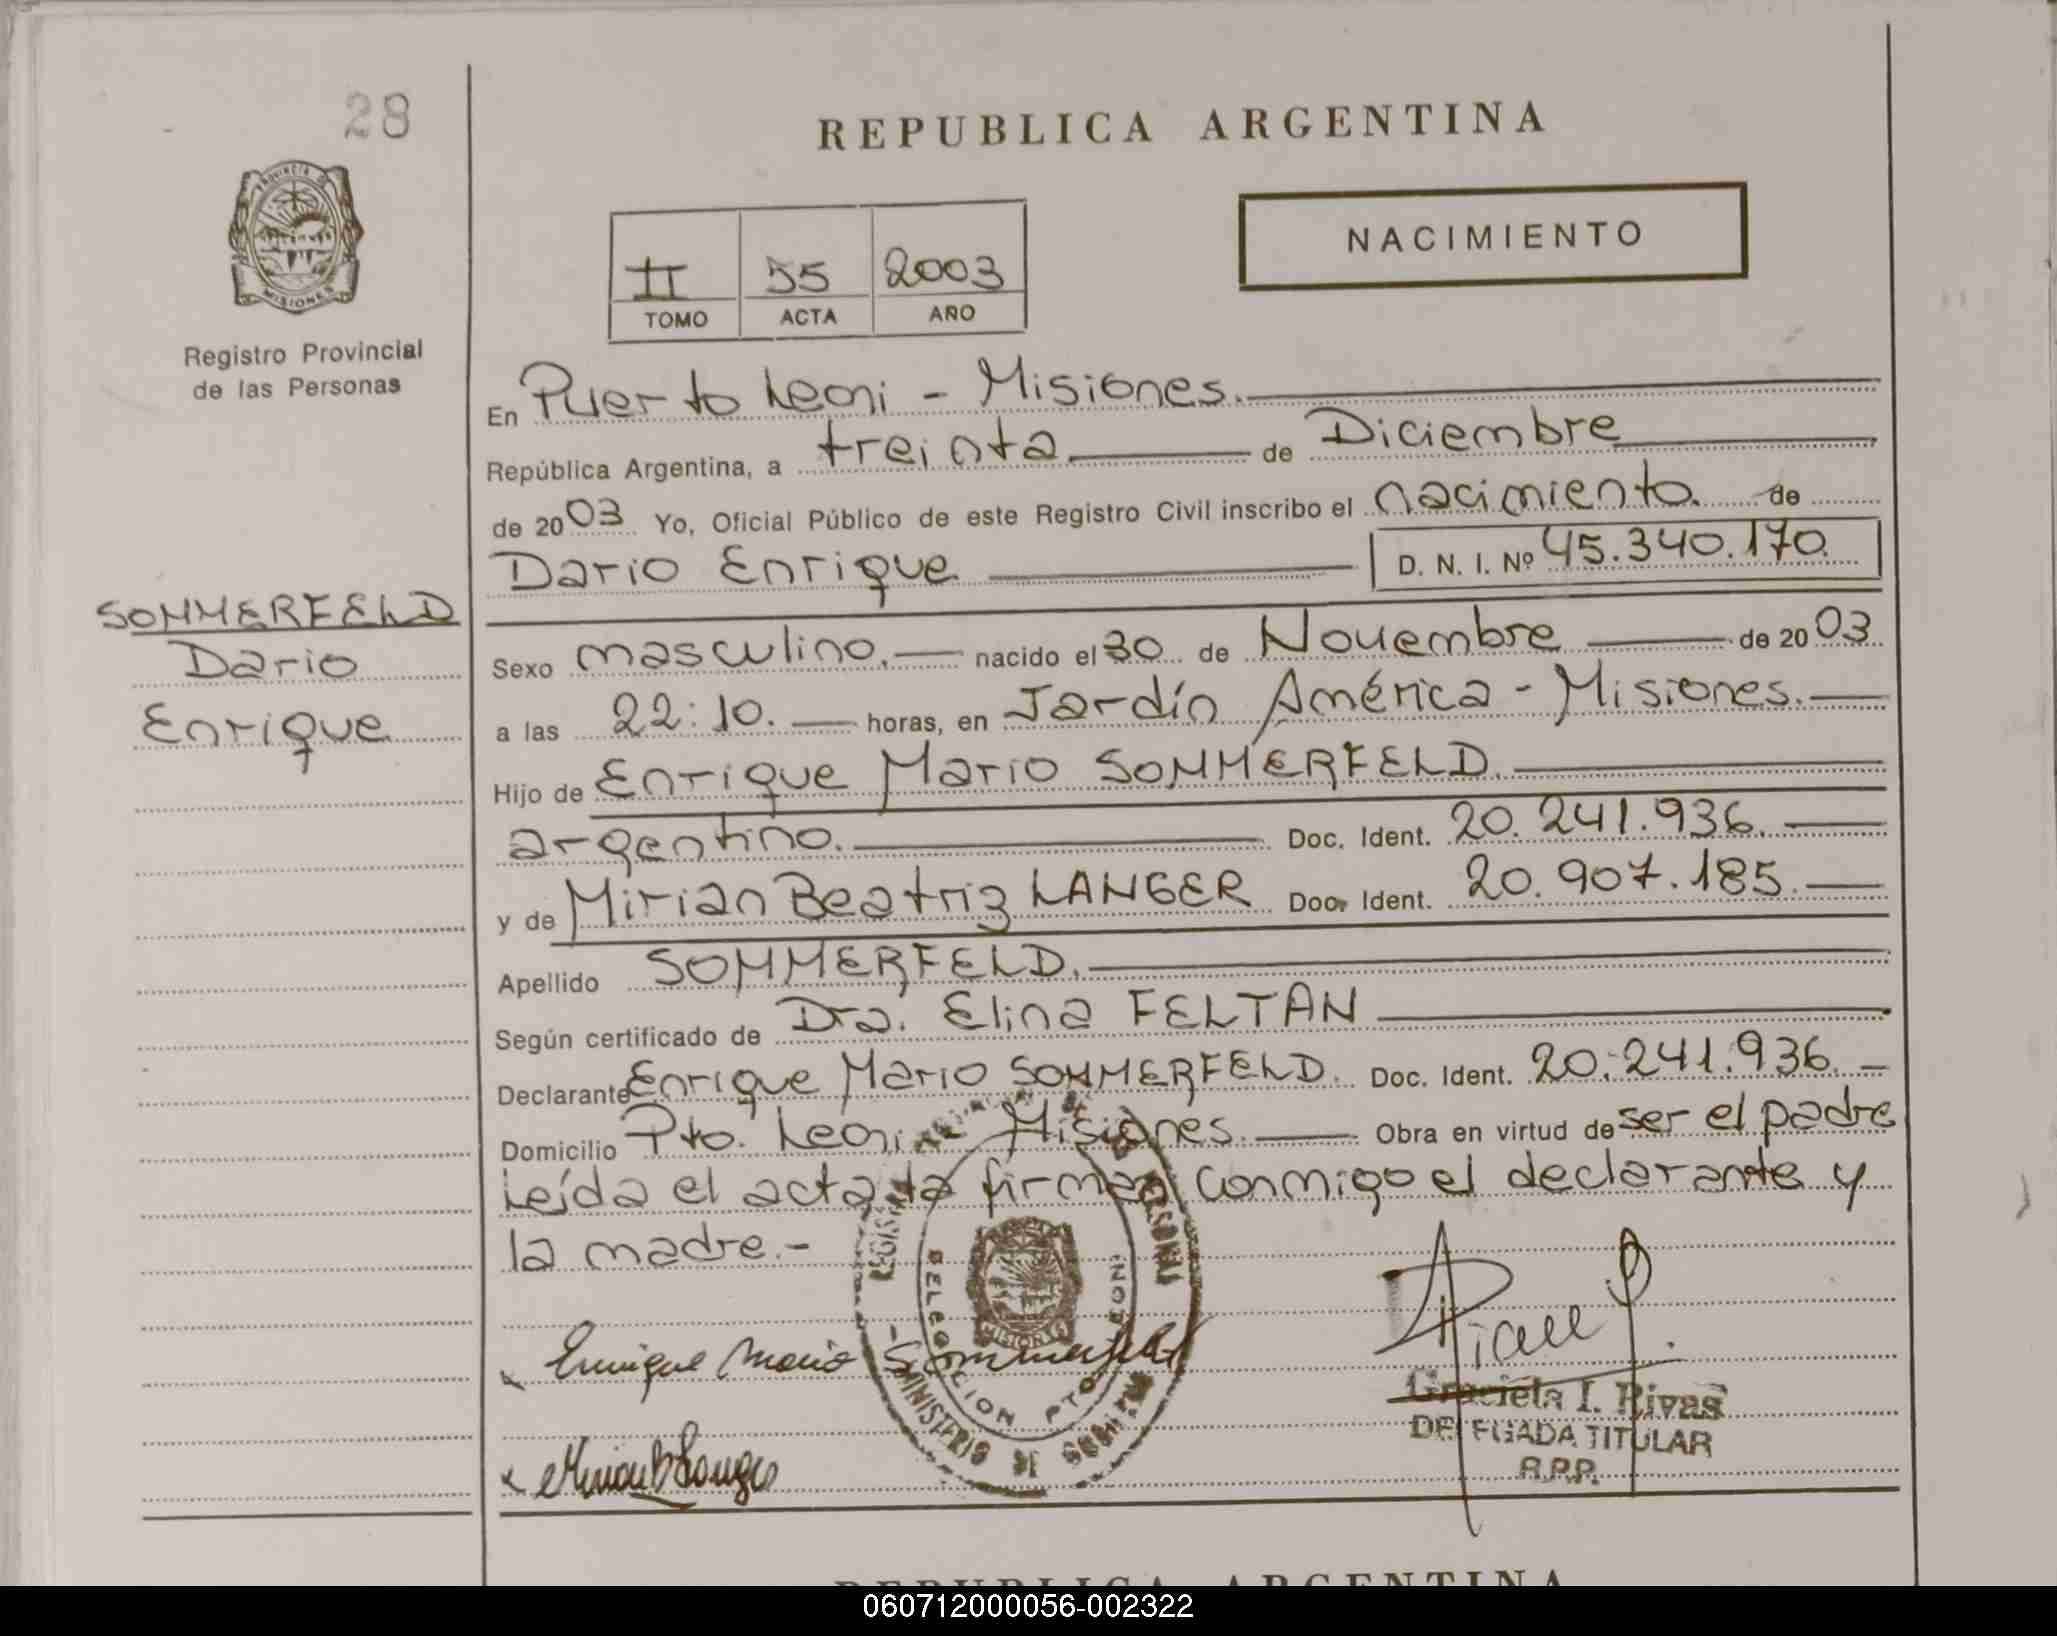 28
REPUBLICA ARGENTINA
PROVINCIA DE
MISIONES
Registro Provincial
de las Personas
NACIMIENTO
II 55 2003
TOMO ACTA AÑO
En Puerto Leoni - Misiones.
República Argentina, a treinta de Diciembre
de 2003 Yo, Oficial Público de este Registro Civil inscribo el nacimiento. de
Dario Enrique D. N. I. Nº 45.340.170.
SOMMERFELD
Dario
Enrique
Sexo masculino. nacido el 30 de Noviembre de 2003
a las 22:10. horas, en Jardín América - Misiones.
Hijo de Enrique Mario SOMMERFELD.
argentino. Doc. Ident. 20.241.936.
y de Mirian Beatriz LANGER Doc. Ident. 20.907.185.
Apellido SOMMERFELD.
Según certificado de Dra. Elina FELTAN
Declarante Enrique Mario SOMMERFELD. Doc. Ident. 20.241.936.
Domicilio Pto. Leoni - Misiones. Obra en virtud de ser el padre
Leída el acta la firman conmigo el declarante y
la madre.-
DELEGACION PTO. LEONI
MINISTERIO DE GOBIERNO
MISIONES
x Enrique Mario Sommerfeld
Graciela I. Rivas
DELEGADA TITULAR
R.P.P.
x Mirian B Langer
REPUBLICA ARGENTINA
060712000056-002322